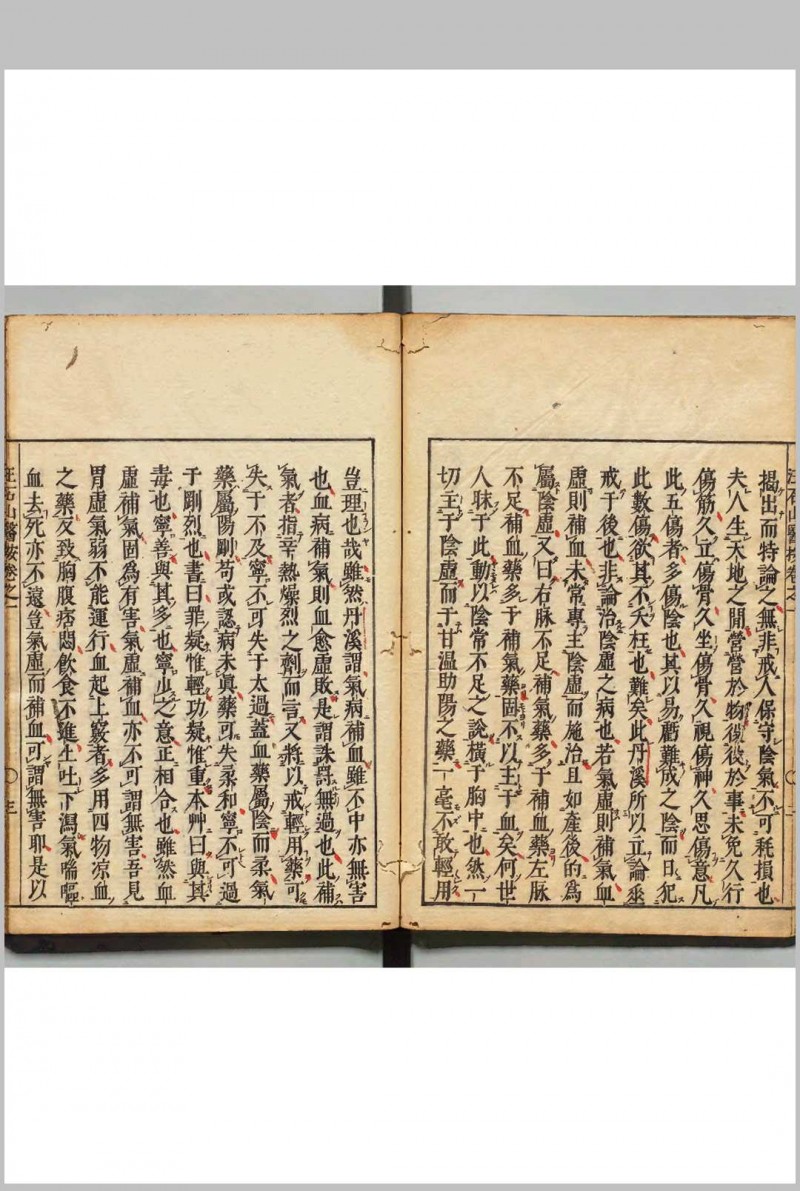 揭出而特論之無非戒人保守陰氣不可耗損也
夫人生天地之間營營於物役役於事未免久行
傷筋久立傷骨久坐傷骨久視傷神久思傷意凡
此五傷者多傷陰也其以易虧難成之陰而日犯
此數傷欲其不夭枉也難矣此丹溪所以立論垂
戒于後也非論治陰虛之病也若氣虛則補氣血
虛則補血未常專主陰虛而施治且如產後的為
屬陰虛又曰右脉不足補氣藥多于補血藥左脉
不足補血藥多于補氣藥固不以主于血矣何世
人昧于此動以陰常不足之說橫于胸中也然一
切主于陰虛而于甘温助陽之藥一毫不敢輕用
豈理也哉雖然丹溪謂氣病補血雖不中亦無害
也血病補氣則血愈虛敗是謂誅罰無過也此補
氣者指辛熱燥烈之劑而言又將以戒輕用藥可
失于不及寧不可失于太過蓋血藥屬陰而柔氣
藥屬陽剛苟或認病未眞藥可失柔和寧不可過
于剛烈也書曰罪疑惟輕功疑惟重本艸曰與其
毒也寧善與其多也寧少之意正相合也雖然血
虛補氣固為有害氣虛補血亦不可謂無害吾見
胃虛氣弱不能運行血起上竅者多用四物凉血
之藥反致胸腹痞悶飲食不進上吐下瀉氣喘嘔
血去死亦不遠豈氣虛而補血可謂無害耶是以
汪石山醫按卷之一
二
汪石山醫按卷之一
三